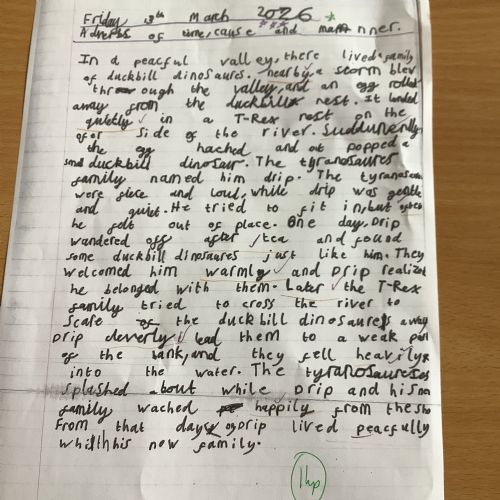 Friday, 13th March 2026
Adverbs of time, cause and manner.
In a peaceful valley, there lived a family
of duckbill dinosaures. nearby, a storm blew
through the valley, and an egg rolled
away from the duckbills nest. It landed
quietly in a T-Rex nest on the
ofer side of the river. Suddunerly
the eg hached and out popped a
small duckbill dinosaur. The tyranosaures
family named him drip. The tyranosaures
were fiece and loud, while drip was gentle
and quiet. He tried to fit in, but often
he felt out of place. One day, Drip
wandered off after tea and found
some duckbill dinosaures just like him. They
welcomed him warmly and Drip realized
he belonged with them. Later the T-Rex
family tried to cross the river to
scare the duckbill dinosaures away
Drip cleverly lead them to a weak part
of the bank, and they fell heavily
into the water. The tyranosaureses
splashed about while Drip and his
family wached happily from the
From that day Drip lived peacfully
whith his new family.